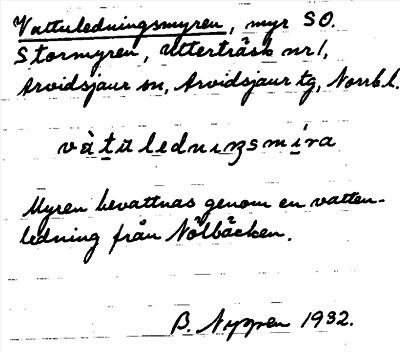 Vattuledningsmyren, myr SO.
Stormyren, Utterträsk nr 1,
Arvidsjaur sn, Arvidsjaur tg, Norrb.l.
vàtuledniŋsmira
Myren bevattnas genom en vatten-
ledning från Nölbäcken.
B. Nygren 1932.